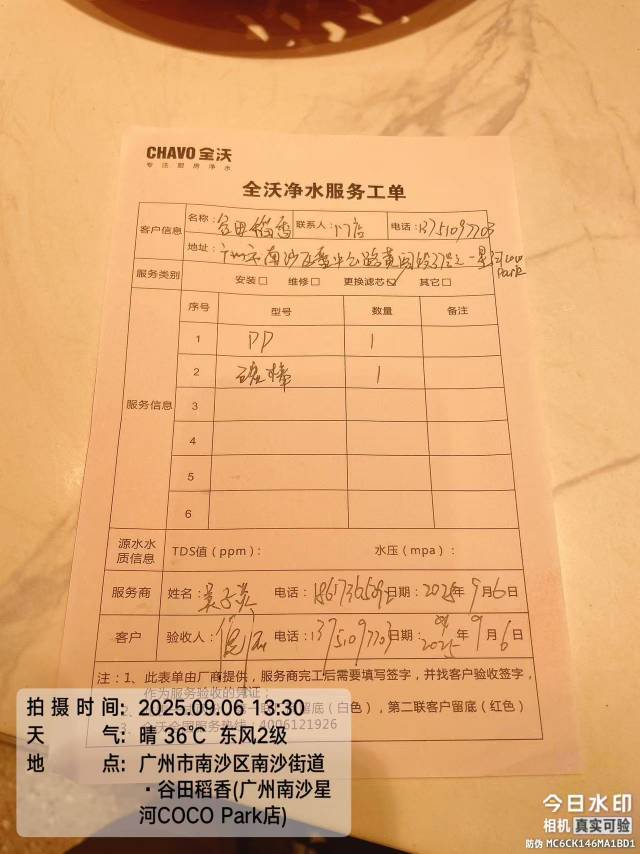 CHAVO 全沃
专注厨房净水
全沃净水服务工单
客户信息 名称：谷田稻香 联系人：门店 电话：13751097703
地址：广州市南沙区 星河coco Park
服务类别 安装□ 维修□ 更换滤芯☑ 其它□
服务信息 序号 型号 数量 备注
1 PP 1
2 碳棒 1
3
4
5
6
源水水质信息 TDS值（ppm）： 水压（mpa）：
服务商 姓名： 电话： 日期：2025年9月6日
客户 验收人： 电话：13751097703 日期：2025年9月6日
注：1、此表单由厂商提供，服务商完工后需要填写签字，并找客户验收签字，
作为服务验收的凭证；
留底（白色），第二联客户留底（红色）
3、全沃全国服务热线：4006121926
拍摄时间：2025.09.06 13:30
天气：晴 36℃ 东风2级
地点：广州市南沙区南沙街道
·谷田稻香(广州南沙星
河COCO Park店)
今日水印
相机 真实可验
防伪 MC6CK146MA1BD1